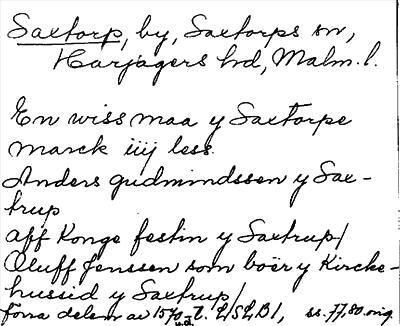 Saxtorp, by, Saxtorps sn,
Harjagers hd, Malm. l.
En wiss maa y Saxtorpe
marck iiij less.
Anders gudmindssen y Sax-
trup
aff Konge festin y Saxtrup/
Oluff Jenssen som boër y Kircke-
hussid y Saxtrup/
förra delem av 1570-t. LSLB1, ss. 77, 80. orig
u.d.